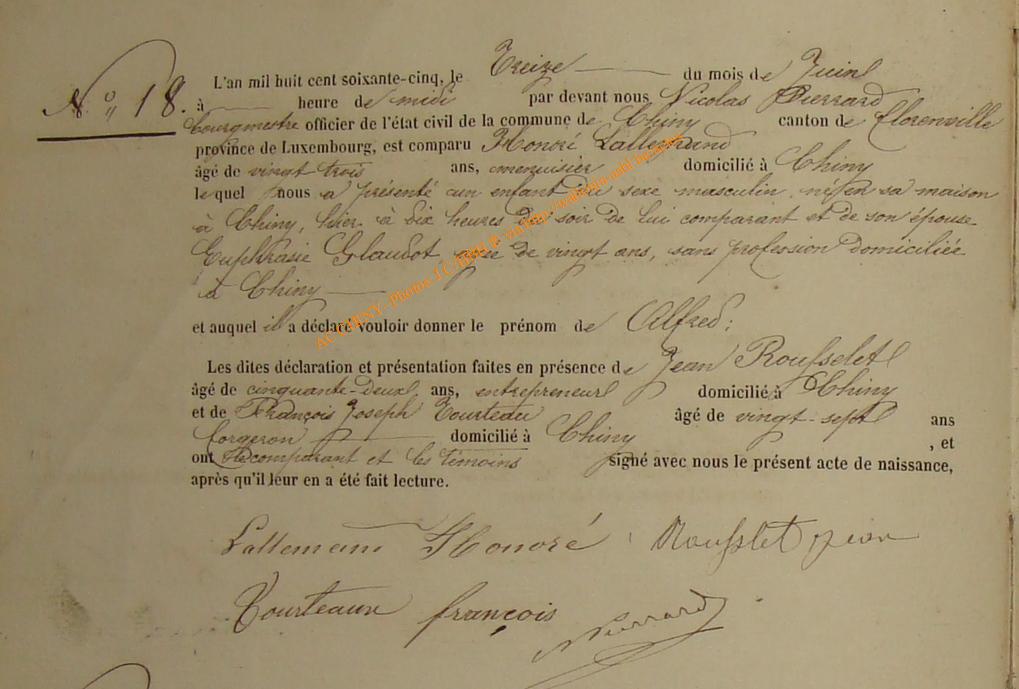 N° 18.
L'an mil huit cent soixante-cinq, le Treize du mois de Juin
à heure de midi par devant nous Nicolas Pierrard
bourgmestre officier de l'état civil de la commune de Chiny canton de Florenville
province de Luxembourg, est comparu Honoré Lallemand
âgé de vingt trois ans, menuisier domicilié à Chiny
lequel nous a présenté un enfant du sexe masculin, né en sa maison
à Chiny, hier à dix heures du soir de lui comparant et de son épouse
Euphrasie Glaudot, agée de vingt ans, sans profession domiciliée
à Chiny
et auquel il a déclaré vouloir donner le prénom de Alfred;
Les dites déclaration et présentation faites en présence de Jean Rousselet
âgé de cinquante-deux ans, entrepreneur domicilié à Chiny
et de François Joseph Tourteau âgé de vingt-sept ans
forgeron domicilié à Chiny , et
ont le comparant et les témoins signé avec nous le présent acte de naissance,
après qu'il leur en a été fait lecture.
Lallemand Honoré Rousslet jean
Tourteaux françois
Pierrard